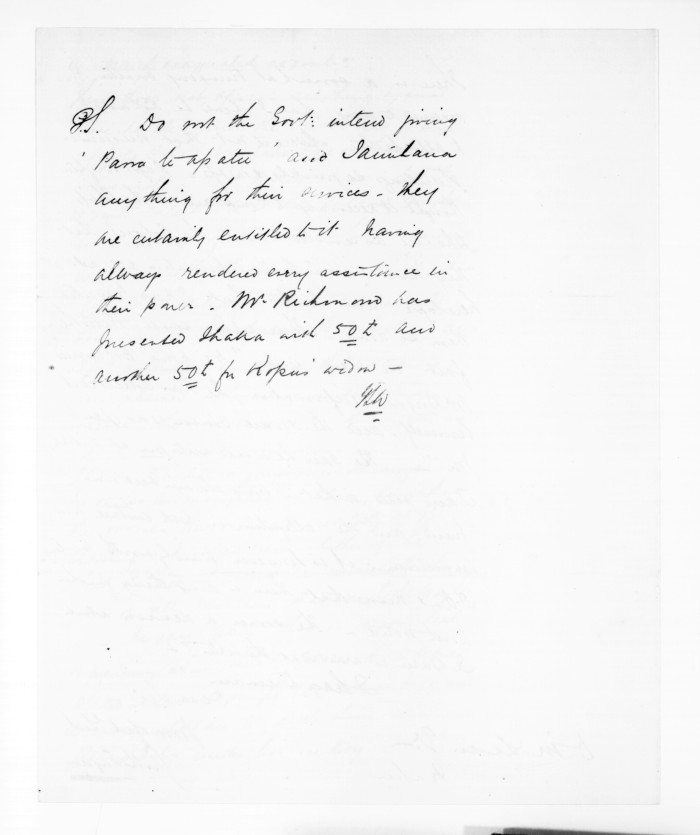 P.S. Do not the Govt: intend giving
'Parra te apatu' and
anything for their services - they
are certainly entitled to it having
allways rendered every assistance in
their power. Mr Richmond has
presented Ihaka with 50£ and
another 50£ for Kopu's widow -